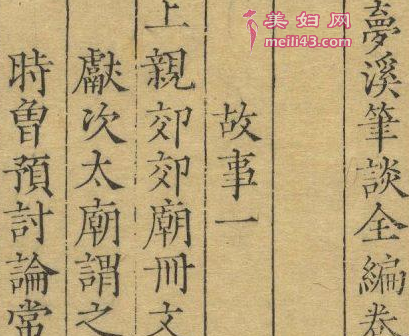 美妇网
meili43.com
夢溪筆談全編卷
故事一
上親郊郊廟冊文
獻次太廟謂之
時曾預討論常